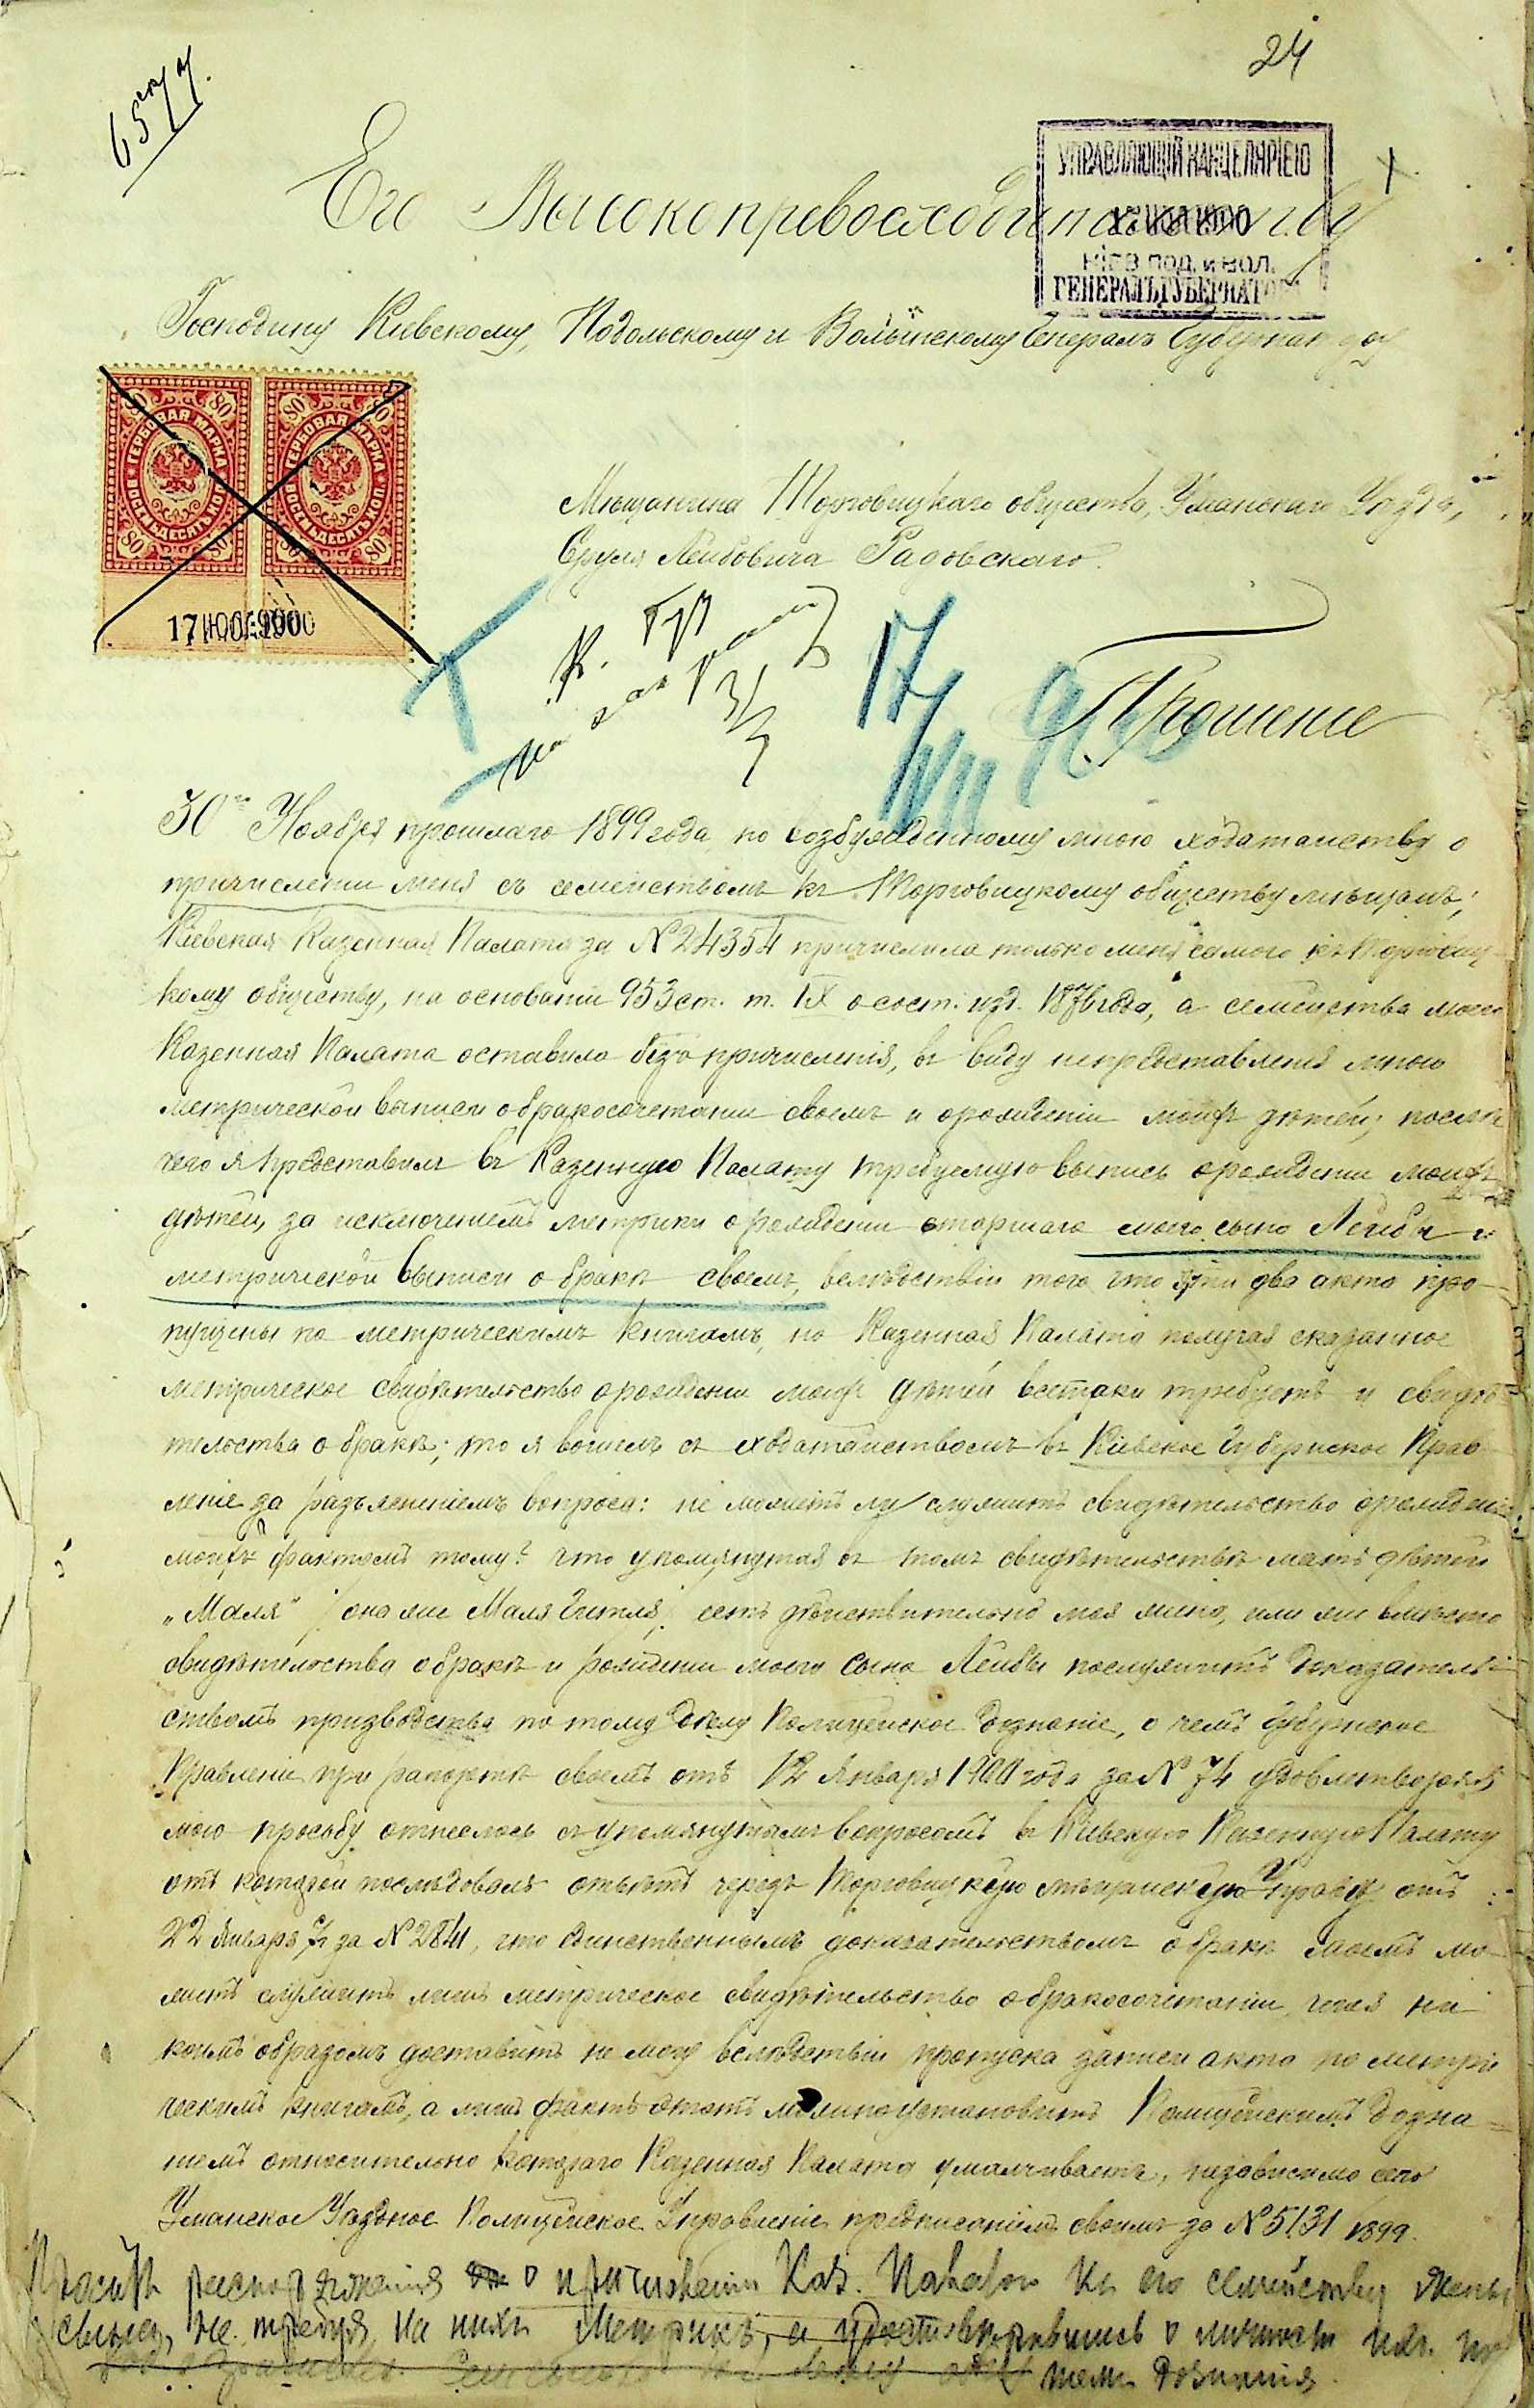 24
Его Высокопревосходительству
УПРАВЛЯЮЩІЙ КАНЦЕЛЯРІЕЮ
17 ІЮЛ 1900
КІЕВ. ПОД. И ВОЛ.
ГЕНЕРАЛЪ ГУБЕРНАТОРА
Господину Кіевскому, Подольскому и Волынскому Генералъ Губернатору
80 80 80 80
ГЕРБОВАЯ МАРКА ВОСЕМЬДЕСЯТЪ КОП. ГЕРБОВАЯ МАРКА ВОСЕМЬДЕСЯТЪ КОП.
80 80 80 80
17 ІЮЛ 1900
Мѣщанина Торговицкаго общества, Уманскаго Уѣзда,
Сруля Лейбовича Радовскаго
17/VII 900
Прошеніе
30го Ноября прошлаго 1899 года по возбужденному мною ходатайству о
причисленіи меня съ семействомъ къ Торговицкому обществу мѣщанъ;
Кіевская Казенная Палата за № 24354 причислила только меня самого къ Торговиц-
кому обществу, на основаніи 953 ст. т. IX о сост. изд. 1876 года, а семейства моего
Казенная Палата оставила безъ причисленія, въ виду непредставленія мною
метрической выписи о бракосочетаніи своемъ и орожденіи моихъ дѣтей; послѣ
чего я представилъ въ Казенную Палату требуемую выпись орожденіи моихъ
дѣтей, за исключеніемъ метрики о рожденіи старшаго моего сына Лейбы и
метрической выписи о бракѣ своемъ, вслѣдствіи того что эти два акта про-
пущены по метрическимъ книгамъ, но Казенная Палата получая сказанное
метрическое свидѣтельство орожденіи моихъ дѣтей всетаки требуетъ и свидѣ-
тельства о бракѣ; то я вошелъ съ ходатайствомъ въ Кіевское Губернское Прав-
леніе за разъясненіемъ вопроса: не можетъ ли служить свидѣтельство орожденіи
моихъ фактомъ тому? что упомянутая въ томъ свидѣтельствѣ мать дѣтей
„Маля" / она же Маля Гитля / есть дѣйствительно моя жена, или же вмѣсто
свидѣтельства о бракѣ и рожденіи моего сына Лейбы послужитъ доказатель-
ствомъ призводства по тому дѣлу Полицейское дознаніе, о чемъ Губернское
Правленіе при рапортѣ своемъ отъ 12 Января 1900 года за № 74 удовлетворяя
мою просьбу отнеслось съ упомянутымъ вопросомъ въ Кіевскую Казенную Палату
отъ которой послѣдовалъ отвѣтъ черезъ Торговицкую мѣщанскую Управу отъ
22 Января за № 2841, что единственнымъ доказательствомъ о бракѣ моемъ мо-
жетъ служить лишь метрическое свидѣтельство о бракосочетаніи, чего я ни
коимъ образомъ доставить не могу вслѣдствіи пропуска записи акта по метри
ческимъ книгамъ, а лишь фактъ этотъ можно установить Полицейскимъ дозна-
ніемъ относительно котораго Казенная Палата умалчиваетъ, независимо сего
Уманское Уѣздное Полицейское Управленіе предписаніемъ своимъ за № 5131 1899.
Проситъ распоряженія о причисленіи Каз. Палатою къ его семейству жены
и сына, не требуя на нихъ Метрикъ, а удостовѣрившись о личности ихъ пу
темъ дознанія.